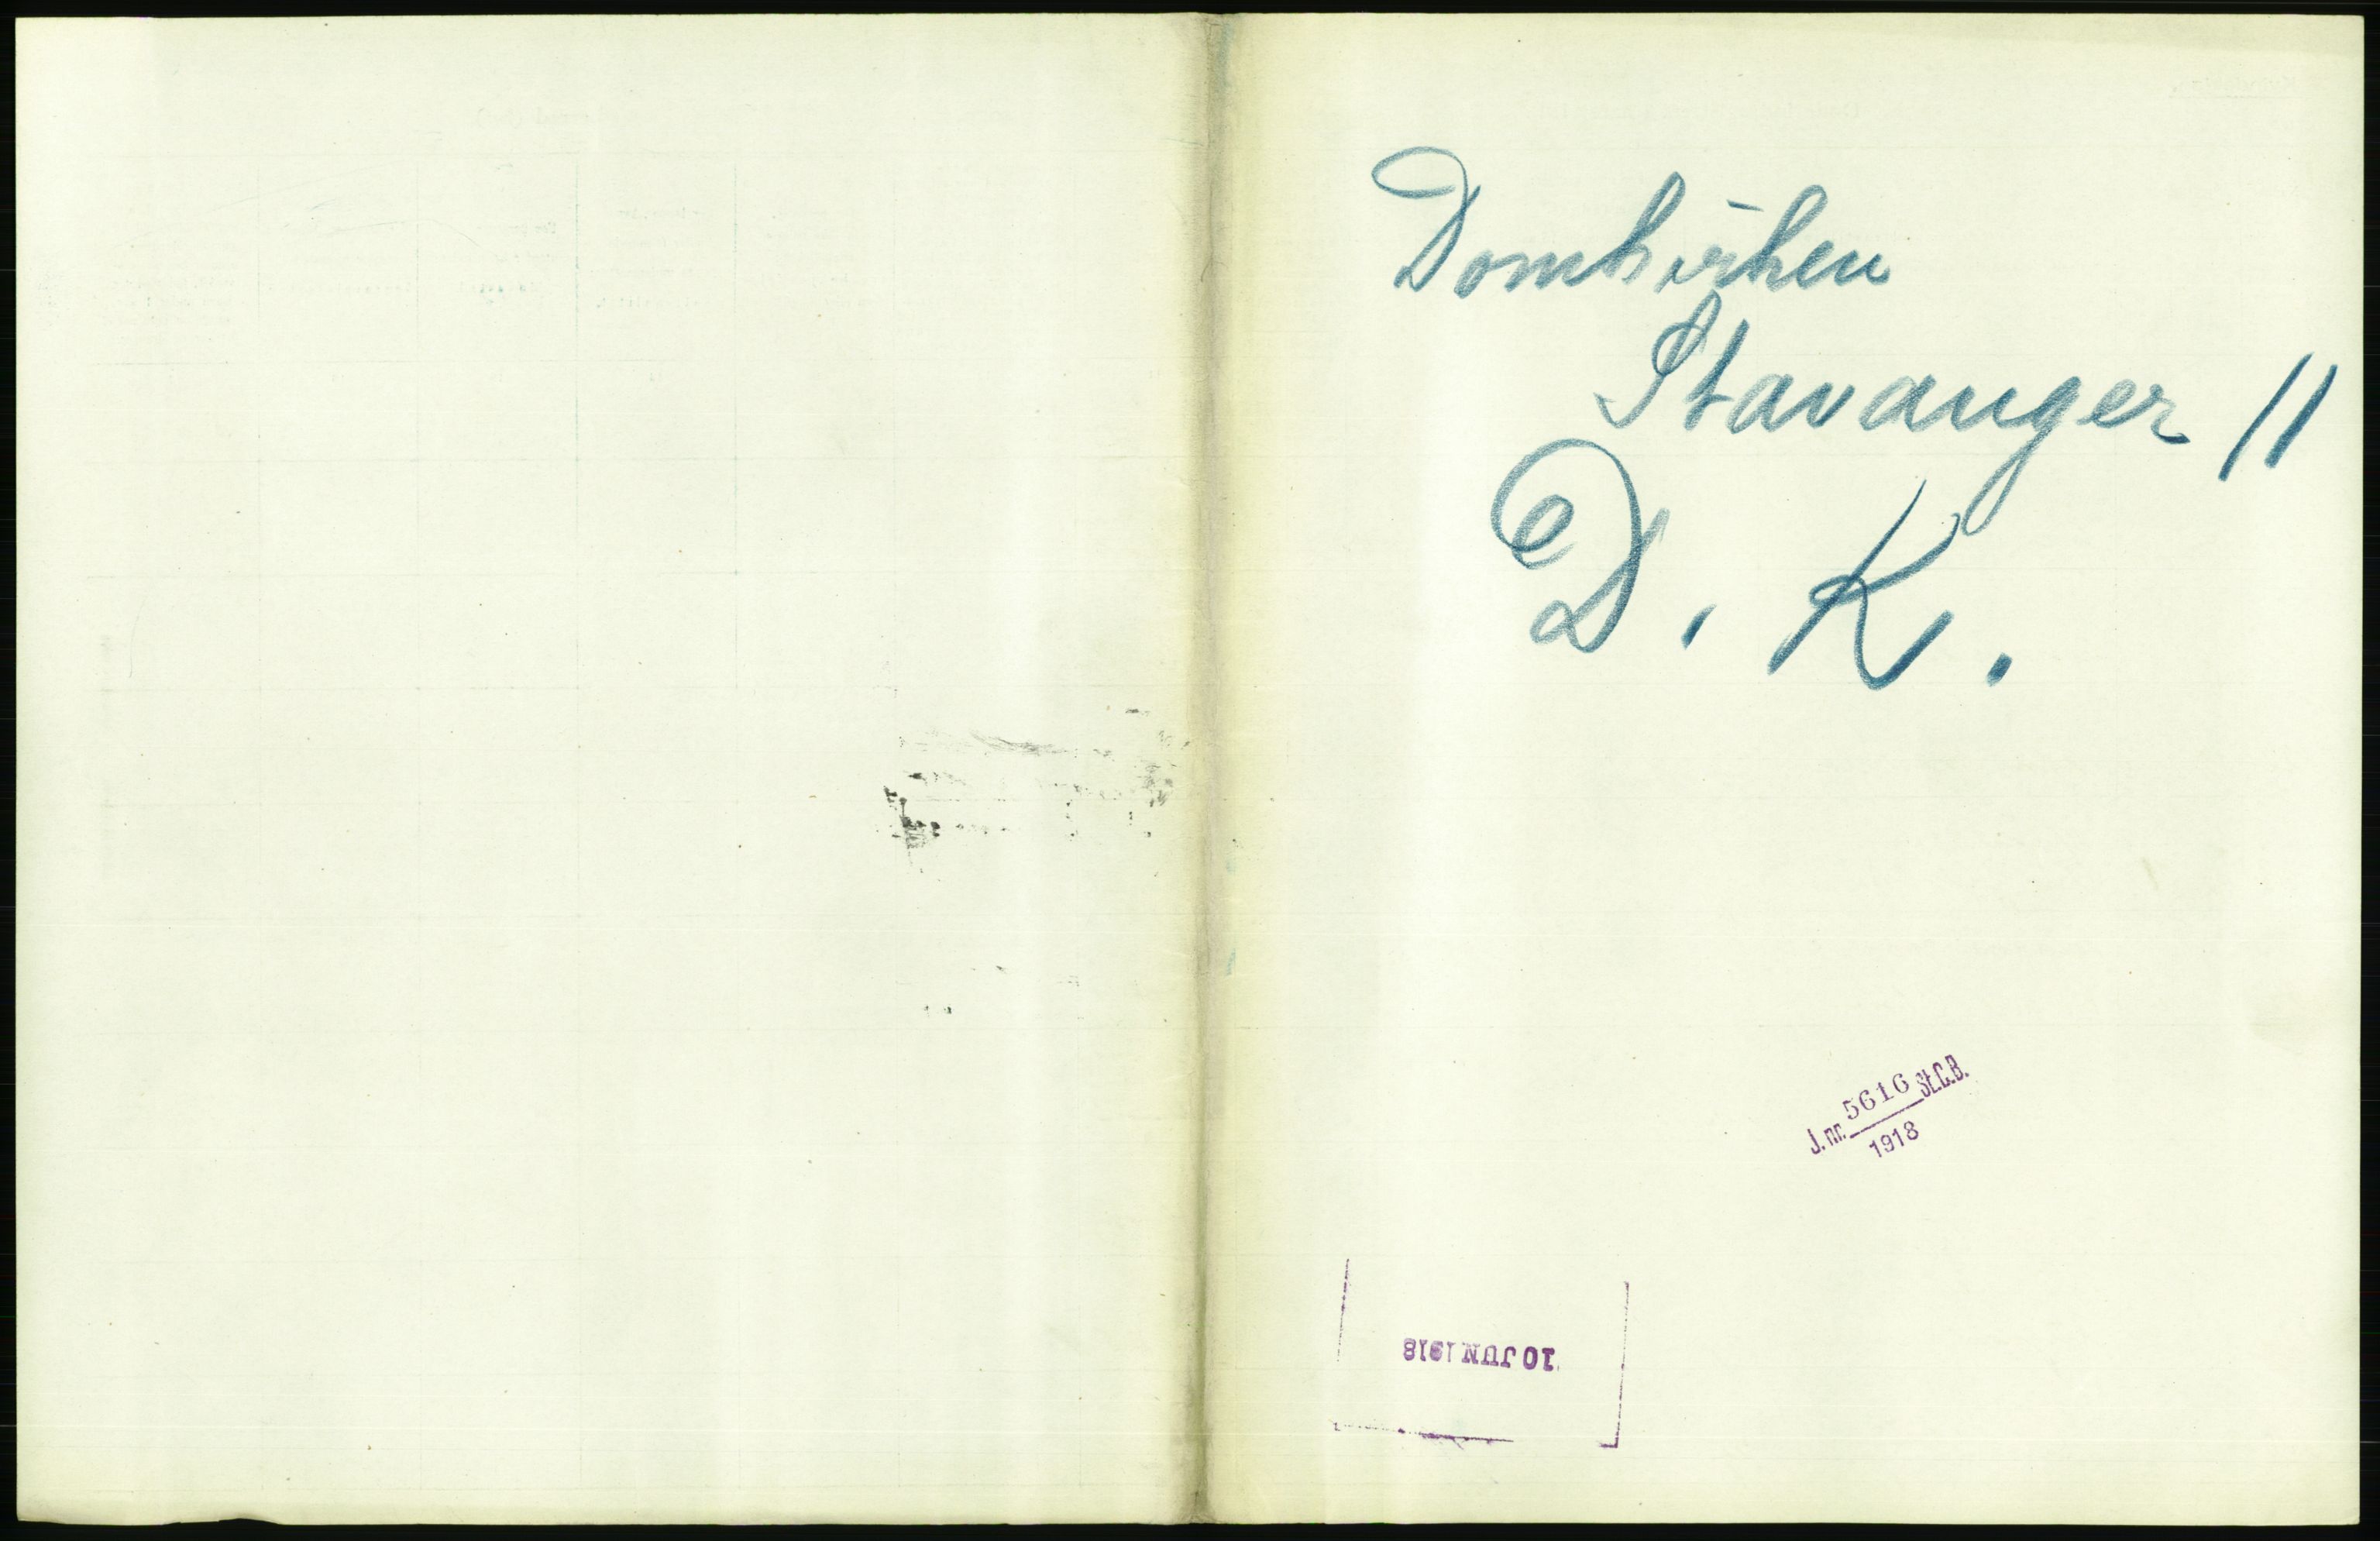 Domkirken
Stavanger //
D. K.
J. nr. 5616 St.C.B.
1918
10 JUN 1918